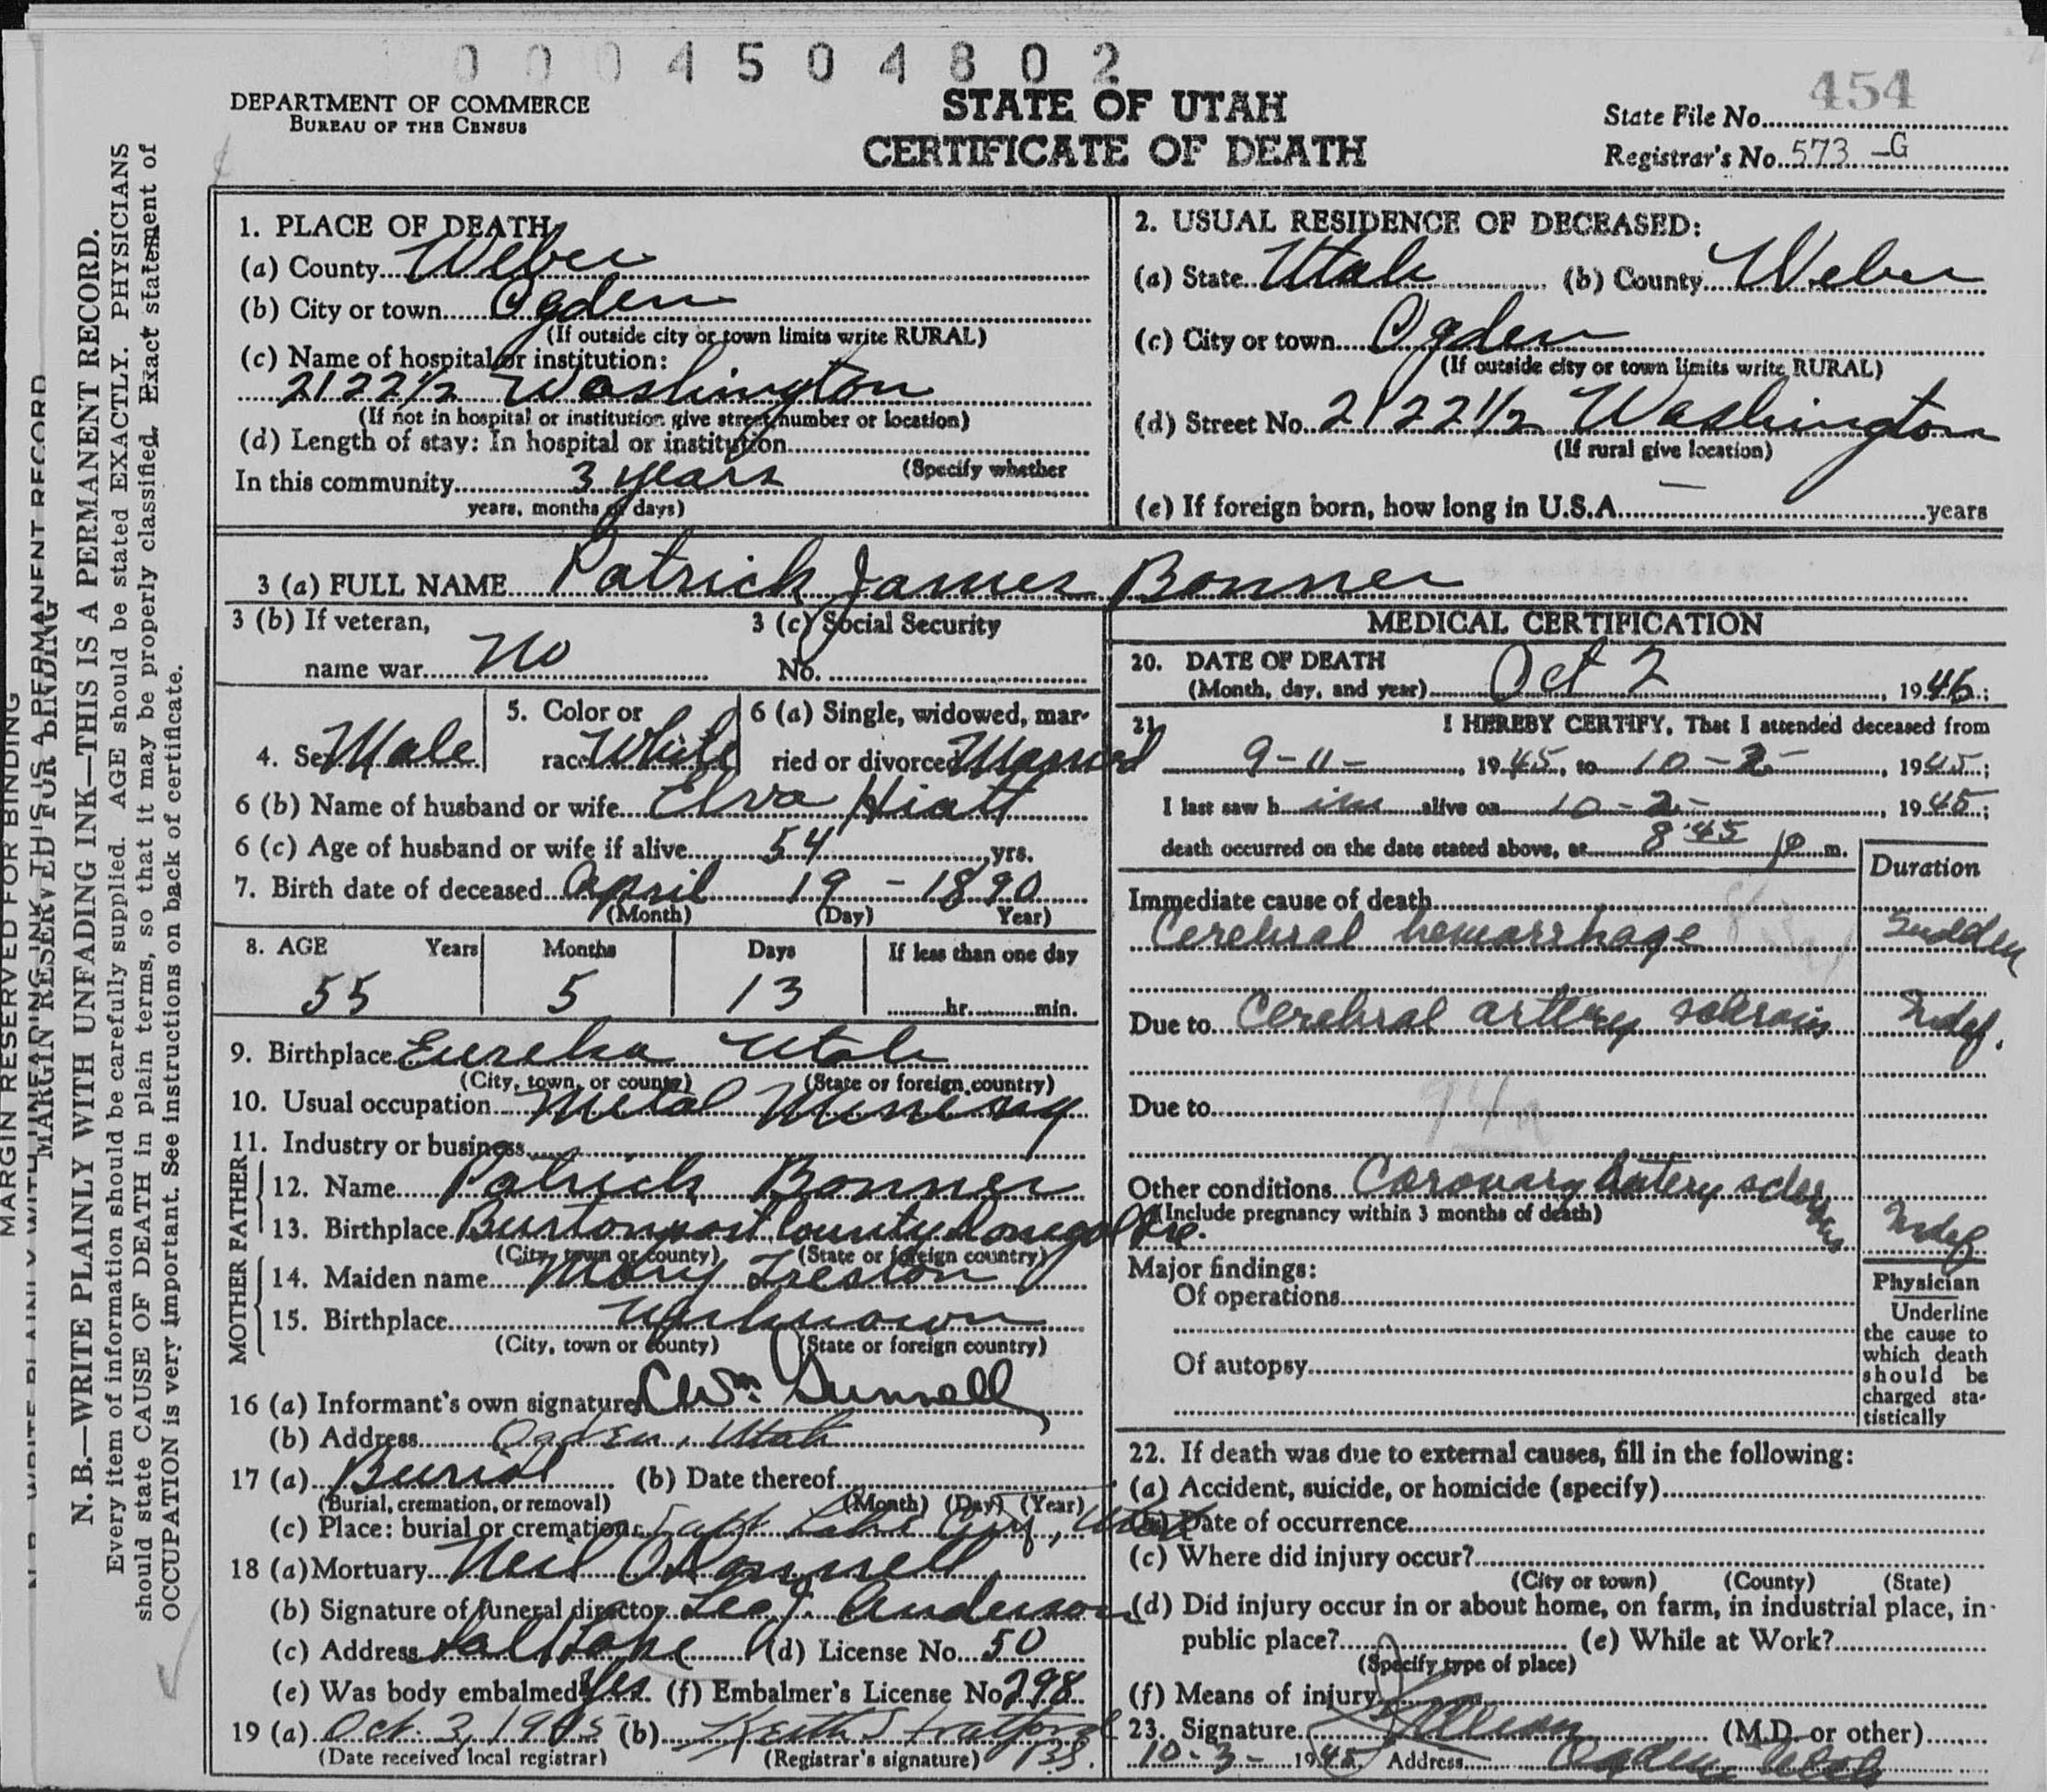 0004504802
DEPARTMENT OF COMMERCE
BUREAU OF THE CENSUS
STATE OF UTAH
CERTIFICATE OF DEATH
State File No. 454
Registrar's No. 573 -G
MARGIN RESERVED FOR BINDING
MARGIN RESERVED FOR BINDING
N. B.—WRITE PLAINLY WITH UNFADING INK—THIS IS A PERMANENT RECORD.
Every item of information should be carefully supplied. AGE should be stated EXACTLY. PHYSICIANS
should state CAUSE OF DEATH in plain terms, so that it may be properly classified. Exact statement of
OCCUPATION is very important. See instructions on back of certificate.
1. PLACE OF DEATH
(a) County Weber
(b) City or town Ogden
(If outside city or town limits write RURAL)
(c) Name of hospital or institution:
2122 1/2 Washington
(If not in hospital or institution give street number or location)
(d) Length of stay: In hospital or institution
(Specify whether
In this community 3 years
years, months or days)
2. USUAL RESIDENCE OF DECEASED:
(a) State Utah (b) County Weber
(c) City or town Ogden
(If outside city or town limits write RURAL)
(d) Street No. 2122 1/2 Washington
(If rural give location)
(e) If foreign born, how long in U.S.A. — years
3 (a) FULL NAME Patrick James Bonner
3 (b) If veteran,
name war No
3 (c) Social Security
No.
4. Sex Male
5. Color or
race White
6 (a) Single, widowed, mar-
ried or divorced Married
6 (b) Name of husband or wife Elva Hiatt
6 (c) Age of husband or wife if alive 54 yrs.
7. Birth date of deceased April 19 - 1890
(Month) (Day) Year)
8. AGE Years Months Days If less than one day
55 5 13 hr. min.
9. Birthplace Eureka Utah
(City, town, or county) (State or foreign country)
10. Usual occupation Metal Mining
11. Industry or business
FATHER
12. Name Patrick Bonner
13. Birthplace Burtonport County Donegal Ire.
(City, town or county) (State or foreign country)
MOTHER
14. Maiden name Mary Treston
15. Birthplace Unknown
(City, town or county) (State or foreign country)
16 (a) Informant's own signature C Wm
(b) Address Ogden, Utah
17 (a) Burial (b) Date thereof
(Burial, cremation, or removal) (Month) (Day) (Year)
(c) Place: burial or cremation Salt Lake City, Utah
18 (a) Mortuary Neil O'Donnell
(b) Signature of funeral director Leo J. Anderson
(c) Address Salt Lake (d) License No. 50
(e) Was body embalmed Yes (f) Embalmer's License No 298
19 (a) Oct. 3, 1945 (b) Keith Stratford
(Date received local registrar) (Registrar's signature)
MEDICAL CERTIFICATION
20. DATE OF DEATH
(Month, day, and year) Oct 2, 1946;
21. I HEREBY CERTIFY, That I attended deceased from
9-11-, 1945, to 10-2-, 1945;
I last saw him alive on 10-2-, 1945;
death occurred on the date stated above, at 8:45 p m.
Duration
Immediate cause of death
Cerebral hemorrhage Sudden
Due to Cerebral artery sclerosis Indef.
94a
Due to
Other conditions Coronary artery sclerosis
(Include pregnancy within 3 months of death) Indef
Major findings:
Of operations
Of autopsy
Physician
Underline
the cause to
which death
should be
charged sta-
tistically
22. If death was due to external causes, fill in the following:
(a) Accident, suicide, or homicide (specify)
(b) Date of occurrence
(c) Where did injury occur?
(City or town) (County) (State)
(d) Did injury occur in or about home, on farm, in industrial place, in
public place? (e) While at Work?
(Specify type of place)
(f) Means of injury
23. Signature (M.D. or other)
10-3- 1945 Address Ogden Utah